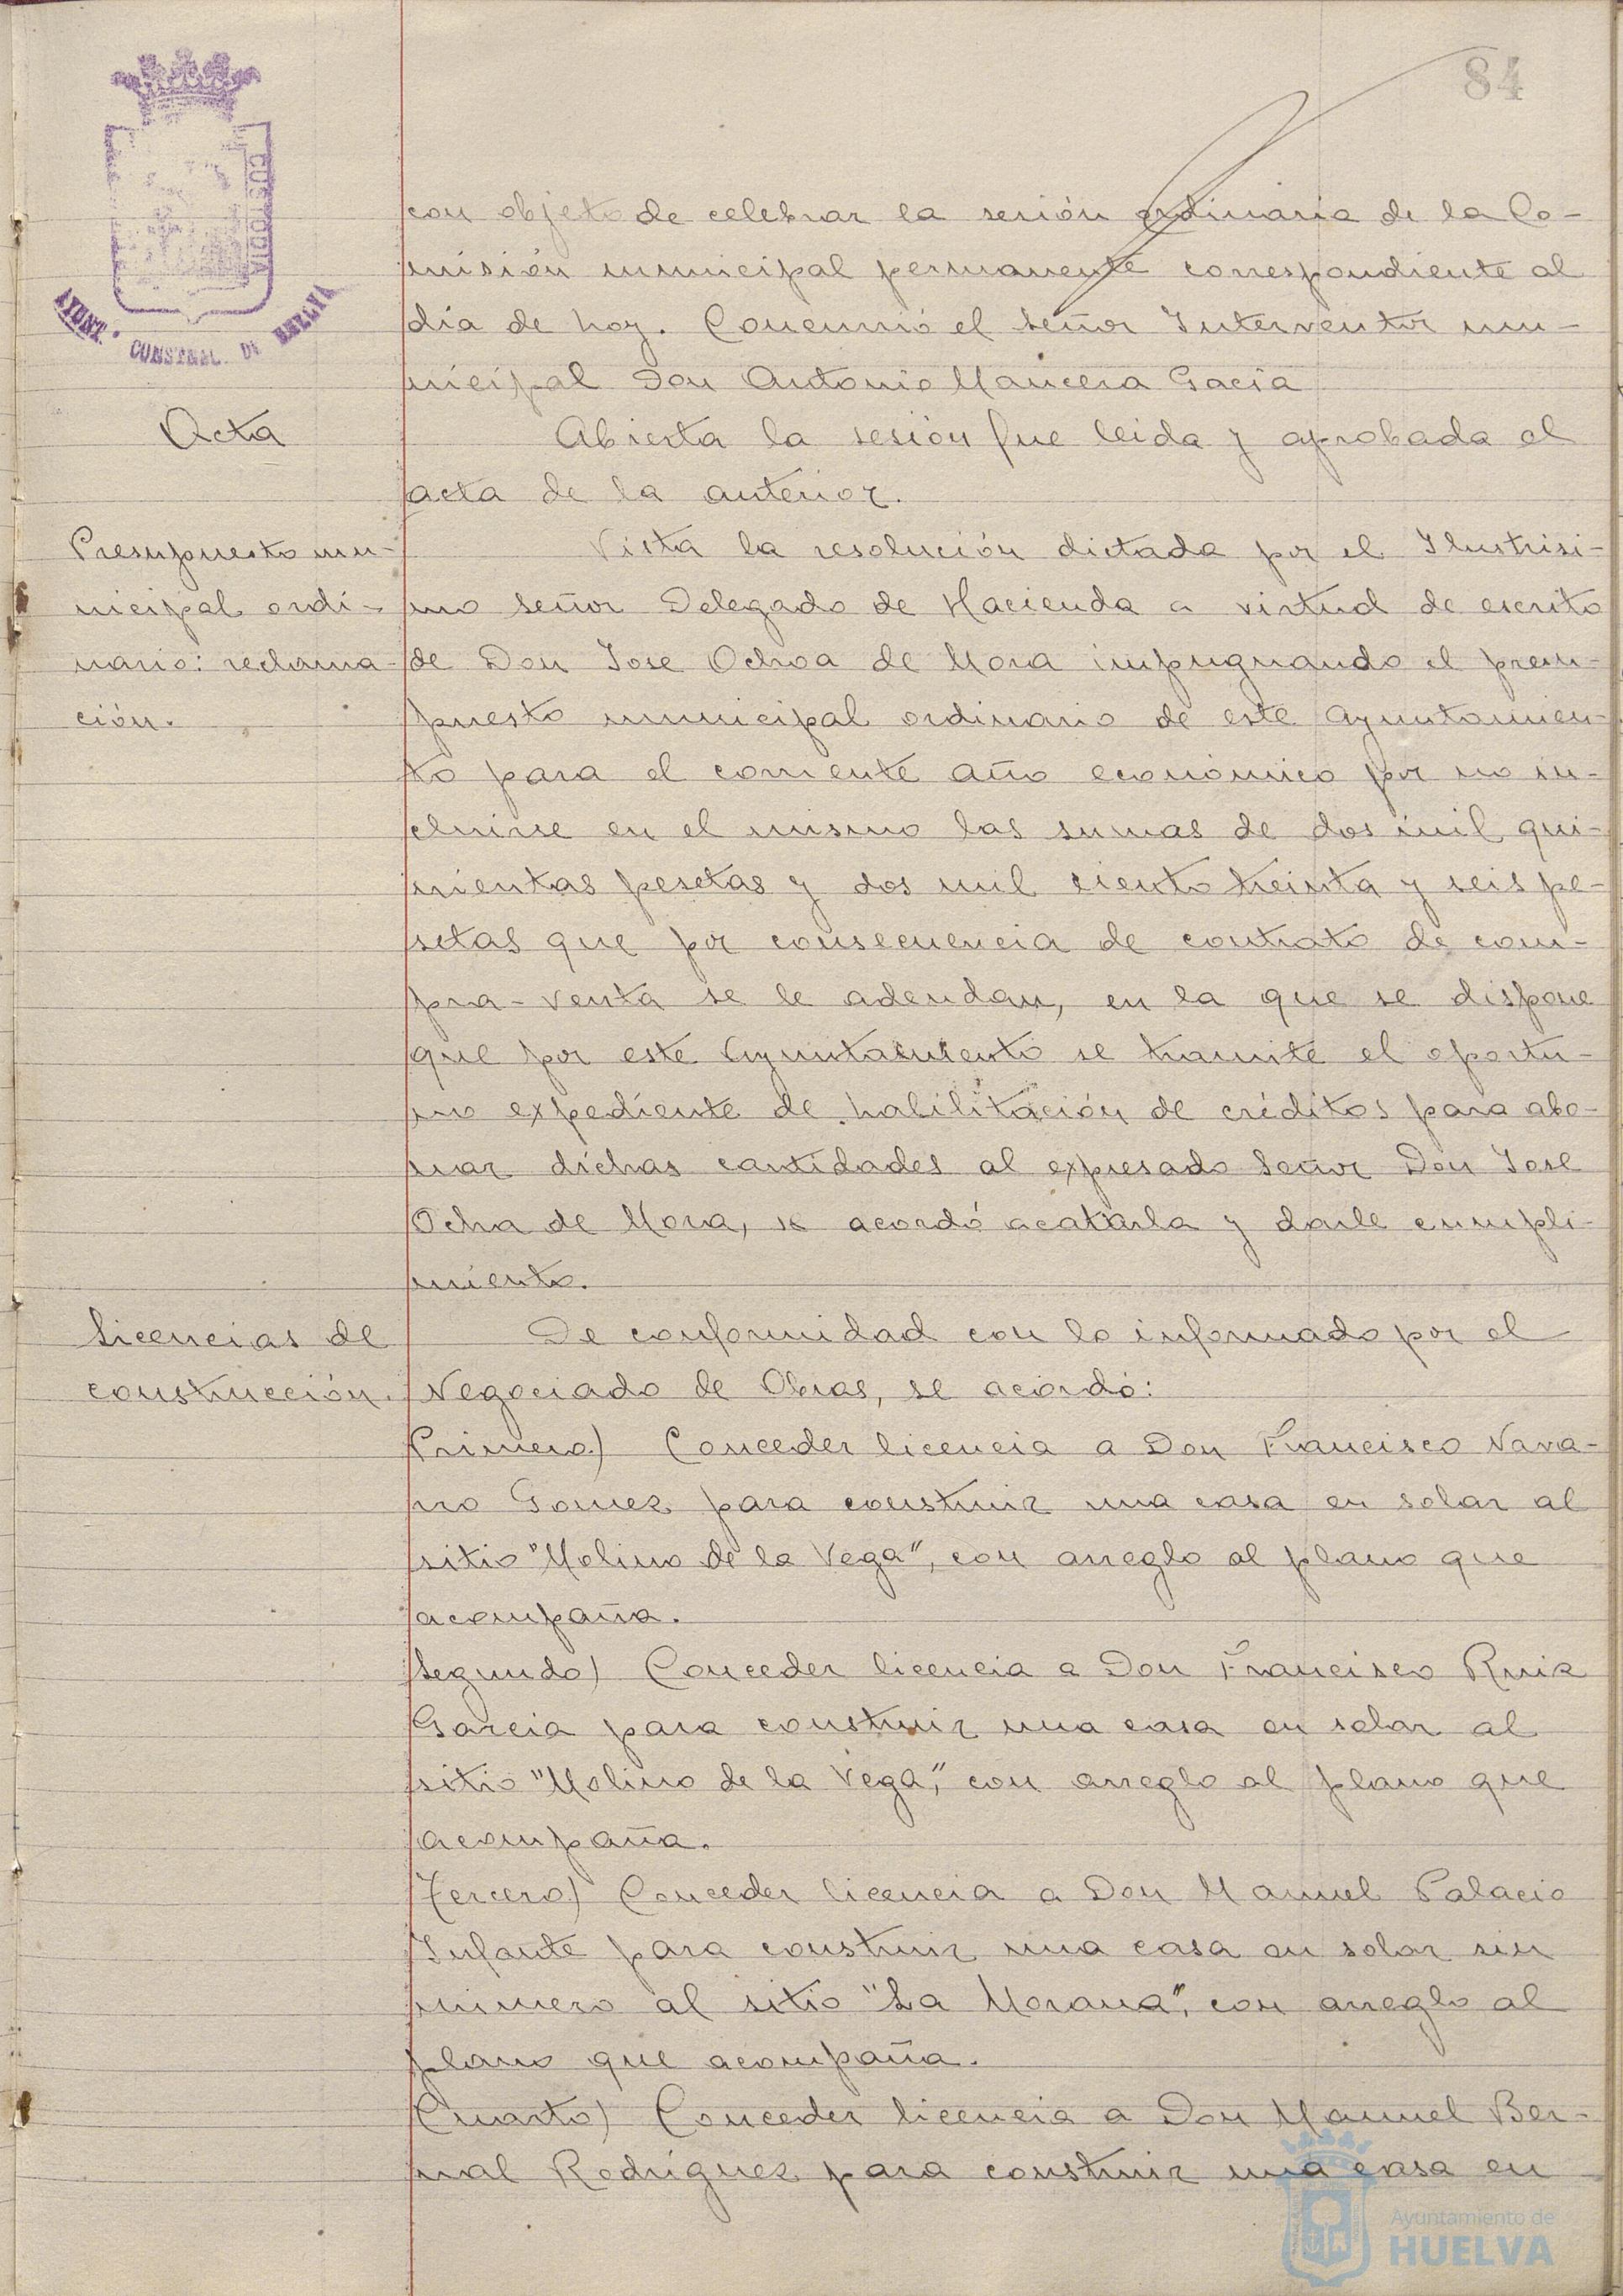 84
CUSTODIA
AYUNT. CONSTNAL. DE HUELVA
con objeto de celebrar la sesión ordinaria de la Co-
misión municipal permanente correspondiente al
día de hoy. Concurrió el señor Interventor mu-
nicipal Don Antonio Mancera Gacía
Acta
Abierta la sesión fue leida y aprobada el
acta de la anterior.
Presupuesto mu-
nicipal ordi-
nario: reclama-
ción.
Vista la resolución dictada por el Ilustrisi-
mo señor Delegado de Hacienda a virtud de escrito
de Don Jose Ochoa de Mora impugnando el presu-
puesto municipal ordinario de este Ayuntamien-
to para el corriente año económico por no in-
cluirse en el mismo las sumas de dos mil qui-
nientas pesetas y dos mil ciento treinta y seis pe-
setas que por consecuencia de contrato de com-
pra-venta se le adeudan, en la que se dispone
que por este Ayuntamiento se tramite el oportu-
no expediente de habilitación de créditos para abo-
nar dichas cantidades al expresado Señor Don Jose
Ochoa de Mora, se acordó acatarla y darle cumpli-
miento.
Licencias de
construcción.
De conformidad con lo informado por el
Negociado de Obras, se acordó:
Primero) Conceder licencia a Don Francisco Nava-
rro Gomez para construir una casa en solar al
sitio "Molino de la Vega", con arreglo al plano que
acompaña.
Segundo) Conceder licencia a Don Francisco Ruiz
Garcia para construir una casa en solar al
sitio "Molino de la Vega", con arreglo al plano que
acompaña.
Tercero) Conceder licencia a Don Manuel Palacio
Infante para construir una casa en solar sin
número al sitio "La Morana", con arreglo al
plano que acompaña.
Cuarto) Conceder licencia a Don Manuel Ber-
nal Rodríguez para construir una casa en
Ayuntamiento de
HUELVA